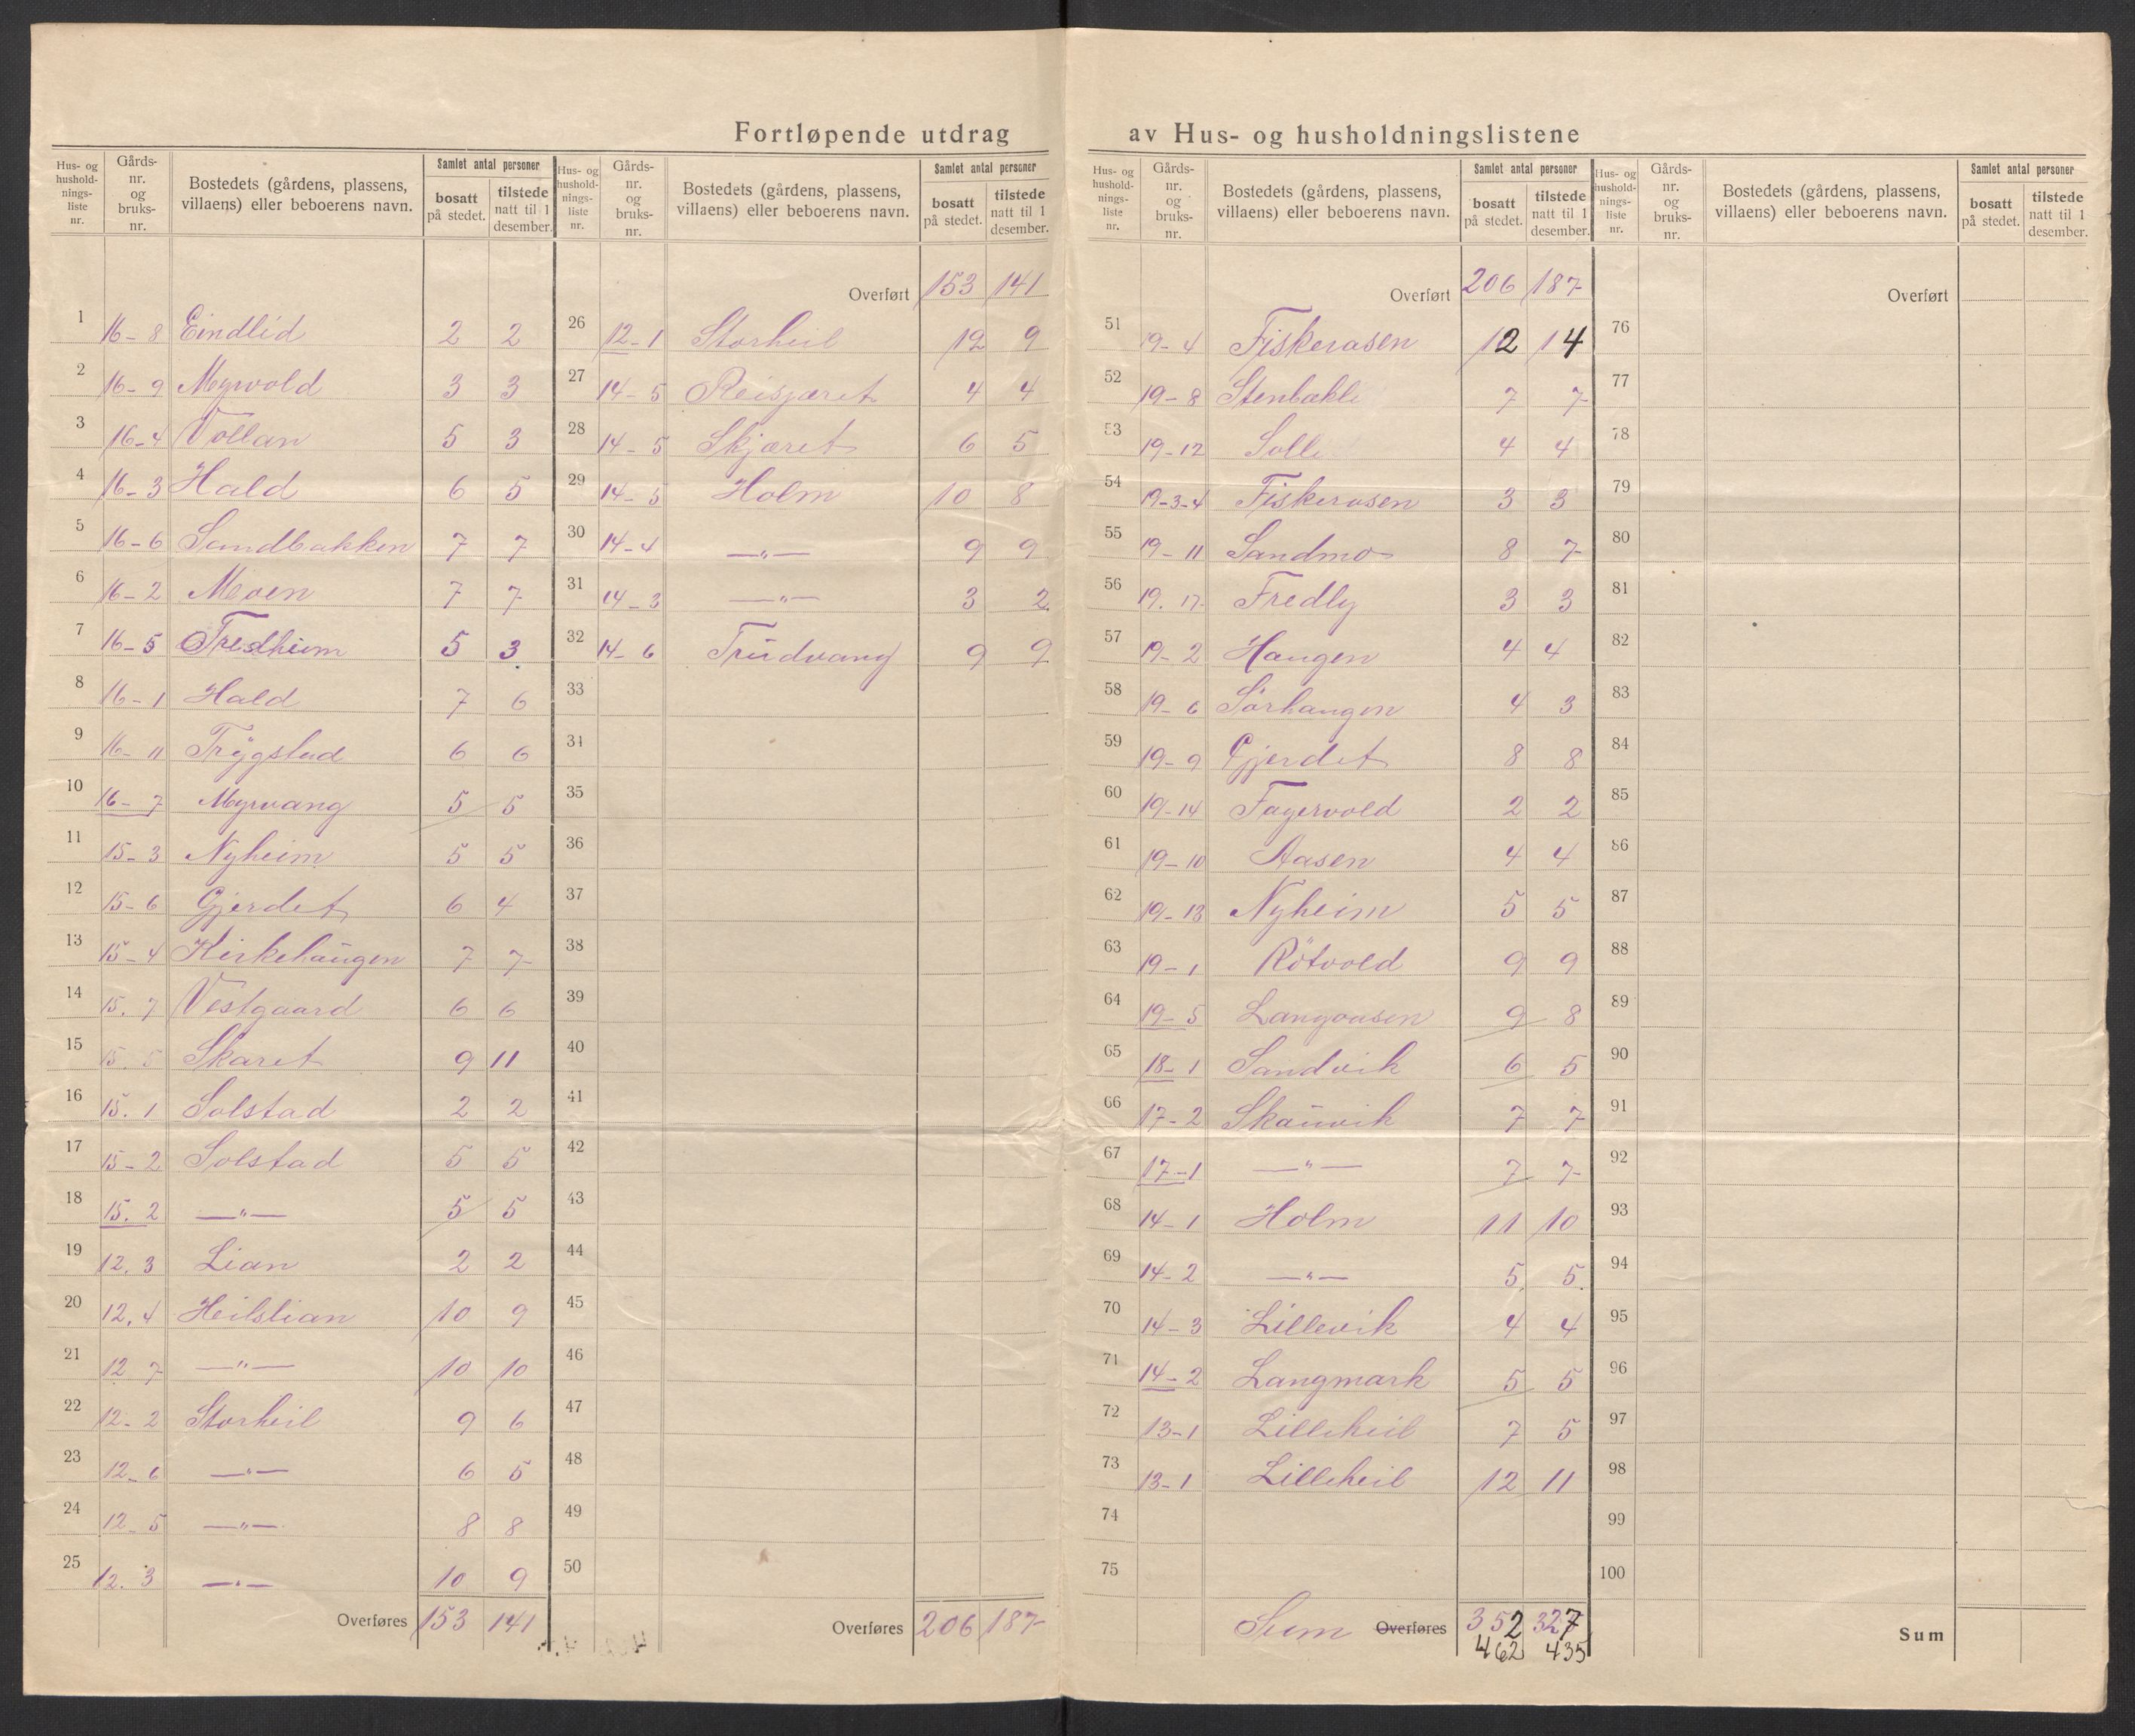 Fortløpende utdrag av Hus- og husholdningslistene
Hus- og husholdnings-liste nr. | Gårds-nr. og bruks-nr. | Bostedets (gårdens, plassens, villaens) eller beboerens navn. | Samlet antal personer | bosatt på stedet. | tilstede natt til 1 desember.
1 16-8 Eindlid 2 2
2 16-9 Myrvold 3 3
3 16-4 Vollan 5 3
4 16-3 Hald 6 5
5 16-6 Sandbakken 7 7
6 16-2 Moen 7 7
7 16-5 Fredheim 5 3
8 16-1 Hald 7 6
9 16-11 Trÿgstad 6 6
10 16-7 Myrvang 5 5
11 15-3 Nyheim 5 5
12 15-6 Gjerdet 6 4
13 15-4 Kirkehaugen 7 7
14 15.7 Vestgaard 6 6
15 15.5 Skaret 9 11
16 15.1 Solstad 2 2
17 15-2 Solstad 5 5
18 15.2 —"— 5 5
19 12.3 Lian 2 2
20 12.4 Heilslian 10 9
21 12 7 —"— 10 10
22 12-2 Storheil 9 6
23 12-6 —"— 6 5
24 12-5 —"— 8 8
25 12.3 —"— 10 9
Overføres 153 141
Hus- og husholdnings-liste nr. | Gårds-nr. og bruks-nr. | Bostedets (gårdens, plassens, villaens) eller beboerens navn. | Samlet antal personer | bosatt på stedet. | tilstede natt til 1 desember.
Overført 153 141
26 12-1 Storheil 12 9
27 14-5 Reisjæret 4 4
28 14-5 Skjæret 6 5
29 14-5 Holm 10 8
30 14-4 —"— 9 9
31 14-3 —"— 3 2
32 14-6 Trudvang 9 9
33
34
35
36
37
38
39
40
41
42
43
44
45
46
47
48
49
50
Overføres 206 187
Hus- og husholdnings-liste nr. | Gårds-nr. og bruks-nr. | Bostedets (gårdens, plassens, villaens) eller beboerens navn. | Samlet antal personer | bosatt på stedet. | tilstede natt til 1 desember.
Overført 206 187
51 19-4 Fiskerosen 12 14
52 19-8 Stenbakk 7 7
53 19-12 Solli 4 4
54 19-3-4 Fiskerosen 3 3
55 19-11 Sandmo 8 7
56 19.17 Fredly 3 3
57 19-2 Haugen 4 4
58 19-6 Sörhaugen 4 3
59 19-9 Gjerdet 8 8
60 19-14 Fagervold 2 2
61 19-10 Aasen 4 4
62 19-13 Nyheim 5 5
63 19-1 Rötvold 9 9
64 19-5 Langaasen 9 8
65 18-1 Sandvik 6 5
66 17-2 Skauvik 7 7
67 17-1 —"— 7 7
68 14-1 Holm 11 10
69 14-2 —"— 5 5
70 14-3 Lillevik 4 4
71 14-2 Langmark 5 5
72 13-1 Lilleheil 7 5
73 13-1 Lilleheil 12 11
74
75
Sum Overføres 352 327
462 435
Hus- og husholdnings-liste nr. | Gårds-nr. og bruks-nr. | Bostedets (gårdens, plassens, villaens) eller beboerens navn. | Samlet antal personer | bosatt på stedet. | tilstede natt til 1 desember.
Overført
76
77
78
79
80
81
82
83
84
85
86
87
88
89
90
91
92
93
94
95
96
97
98
99
100
Sum